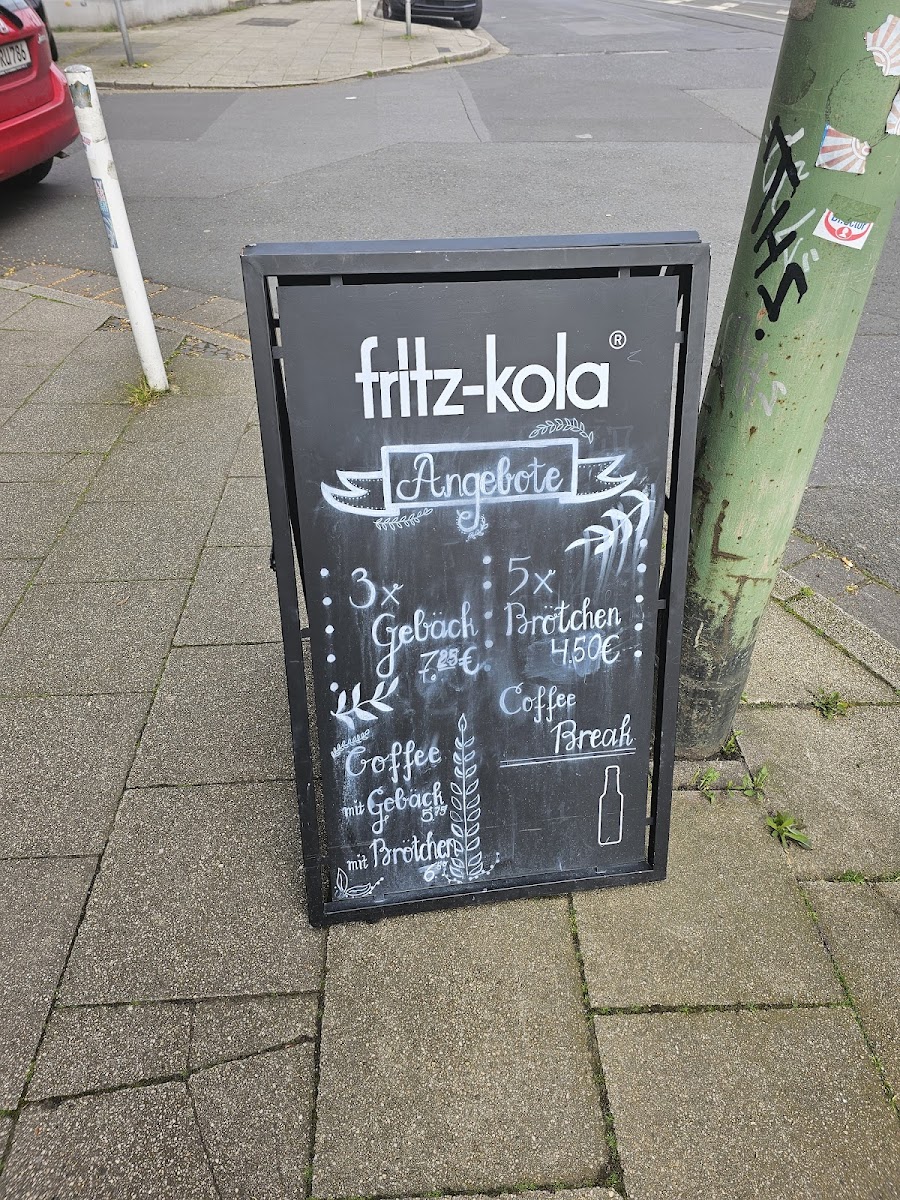 RU786
fritz-kola®
Angebote
3x
Gebäck
7.25€
5x
Brötchen
4.50€
Coffee
Break
Coffee
mit Gebäck
5.75
mit Brötchen
THS.